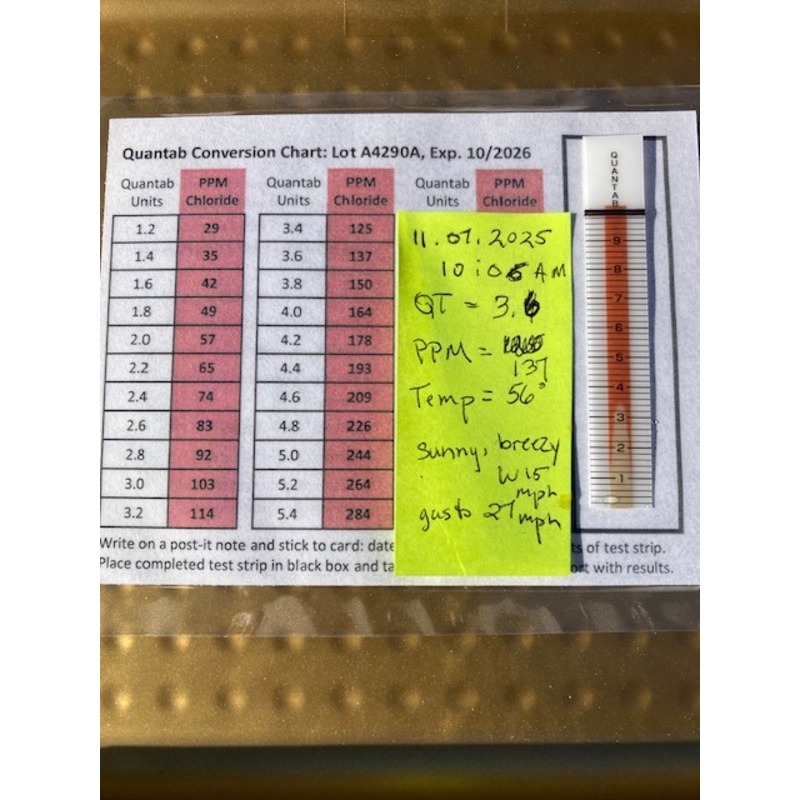 Quantab Conversion Chart: Lot A4290A, Exp. 10/2026
Quantab Units PPM Chloride Quantab Units PPM Chloride Quantab Units PPM Chloride
1.2 29 3.4 125
1.4 35 3.6 137
1.6 42 3.8 150
1.8 49 4.0 164
2.0 57 4.2 178
2.2 65 4.4 193
2.4 74 4.6 209
2.6 83 4.8 226
2.8 92 5.0 244
3.0 103 5.2 264
3.2 114 5.4 284
11.07.2025
10:05 AM
QT = 3.6
PPM =
137
Temp = 56°
Sunny, breezy
W 15
mph
gusts 27 mph
QUANTAB
9
8
7
6
5
4
3
2
1
Write on a post-it note and stick to card: date ts of test strip.
Place completed test strip in black box and ta ort with results.